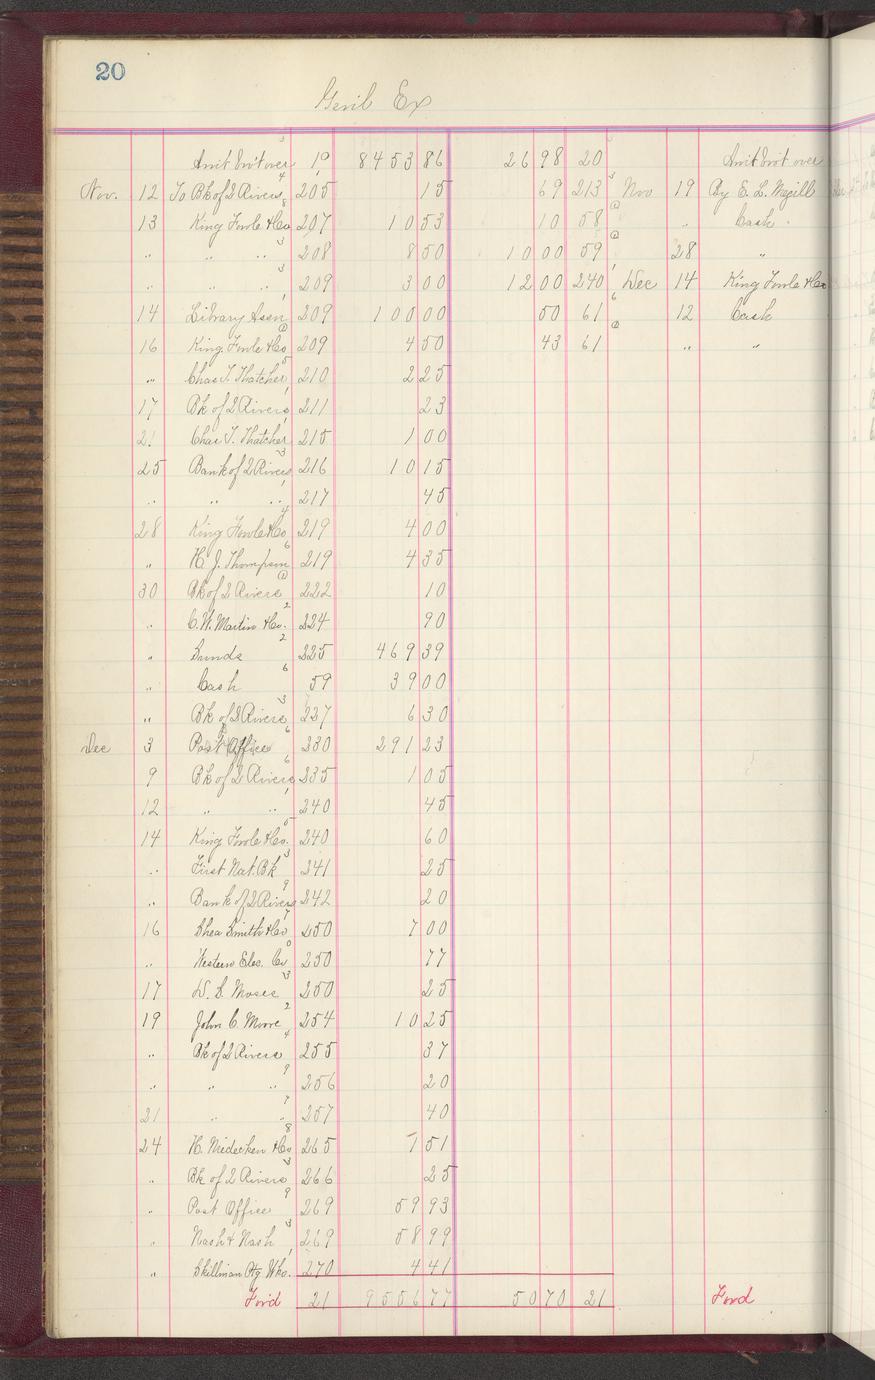 20
Genl Ex
Amt bro't over 19 8453 86 2698 20 Amt bro't over
Nov. 12 To Bk of 2 Rivers 205 15 69 213 Nov 19 By E. L. Megill
13 King Fowle & Co 207 10 53 10 58 " Cash
" " " 208 8 50 10 00 59 28 "
" " " 209 3 00 12 00 240 Dec 14 King Fowle & Co
14 Library Assn 209 100 00 50 61 12 Cash
16 King Fowle & Co 209 4 50 43 61 " "
" Chas T. Thatcher 210 2 25
17 Bk of 2 Rivers 211 23
21 Chas T. Thatcher 215 1 00
25 Bank of 2 Rivers 216 10 15
" " " 217 45
28 King Fowle & Co 219 4 00
" H. J. Thompson 219 4 35
30 Bk of 2 Rivers 222 10
" C. W. Martin & Co. 224 90
" Sunds 225 469 39
" Cash 59 39 00
" Bk of 2 Rivers 227 6 30
Dec 3 Post Office 230 291 23
9 Bk of 2 Rivers 235 1 05
12 " " 240 45
14 King Fowle & Co. 240 60
" First Nat. Bk 241 25
" Bank of 2 Rivers 242 20
16 Shea Smith & Co 250 7 00
" Western Elec. Co 250 77
17 W. S. Moses 250 25
19 John C. Moore 254 10 25
" Bk of 2 Rivers 255 37
" " " 256 20
21 " " 257 40
24 H. Niedecken & Co 265 7 51
" Bk of 2 Rivers 266 25
" Post Office 269 59 93
" Nash & Nash 269 58 99
" Skillman Ptg Wks. 270 4 41
Ford 21 9556 77 50 70 21 Ford